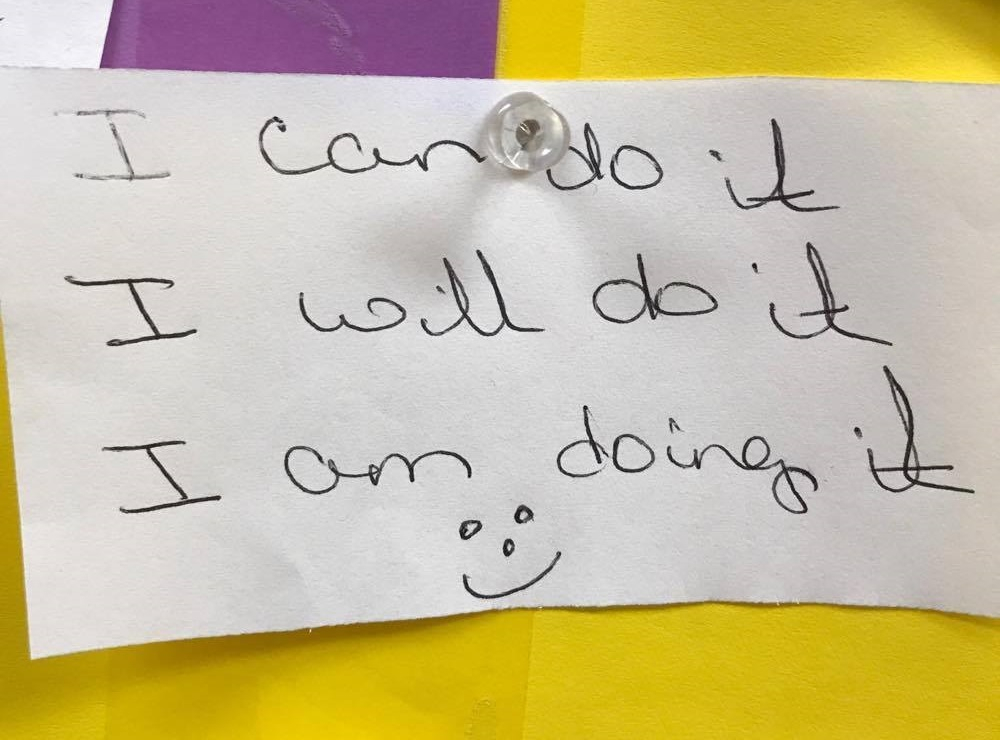 I can do it
I will do it
I am doing it